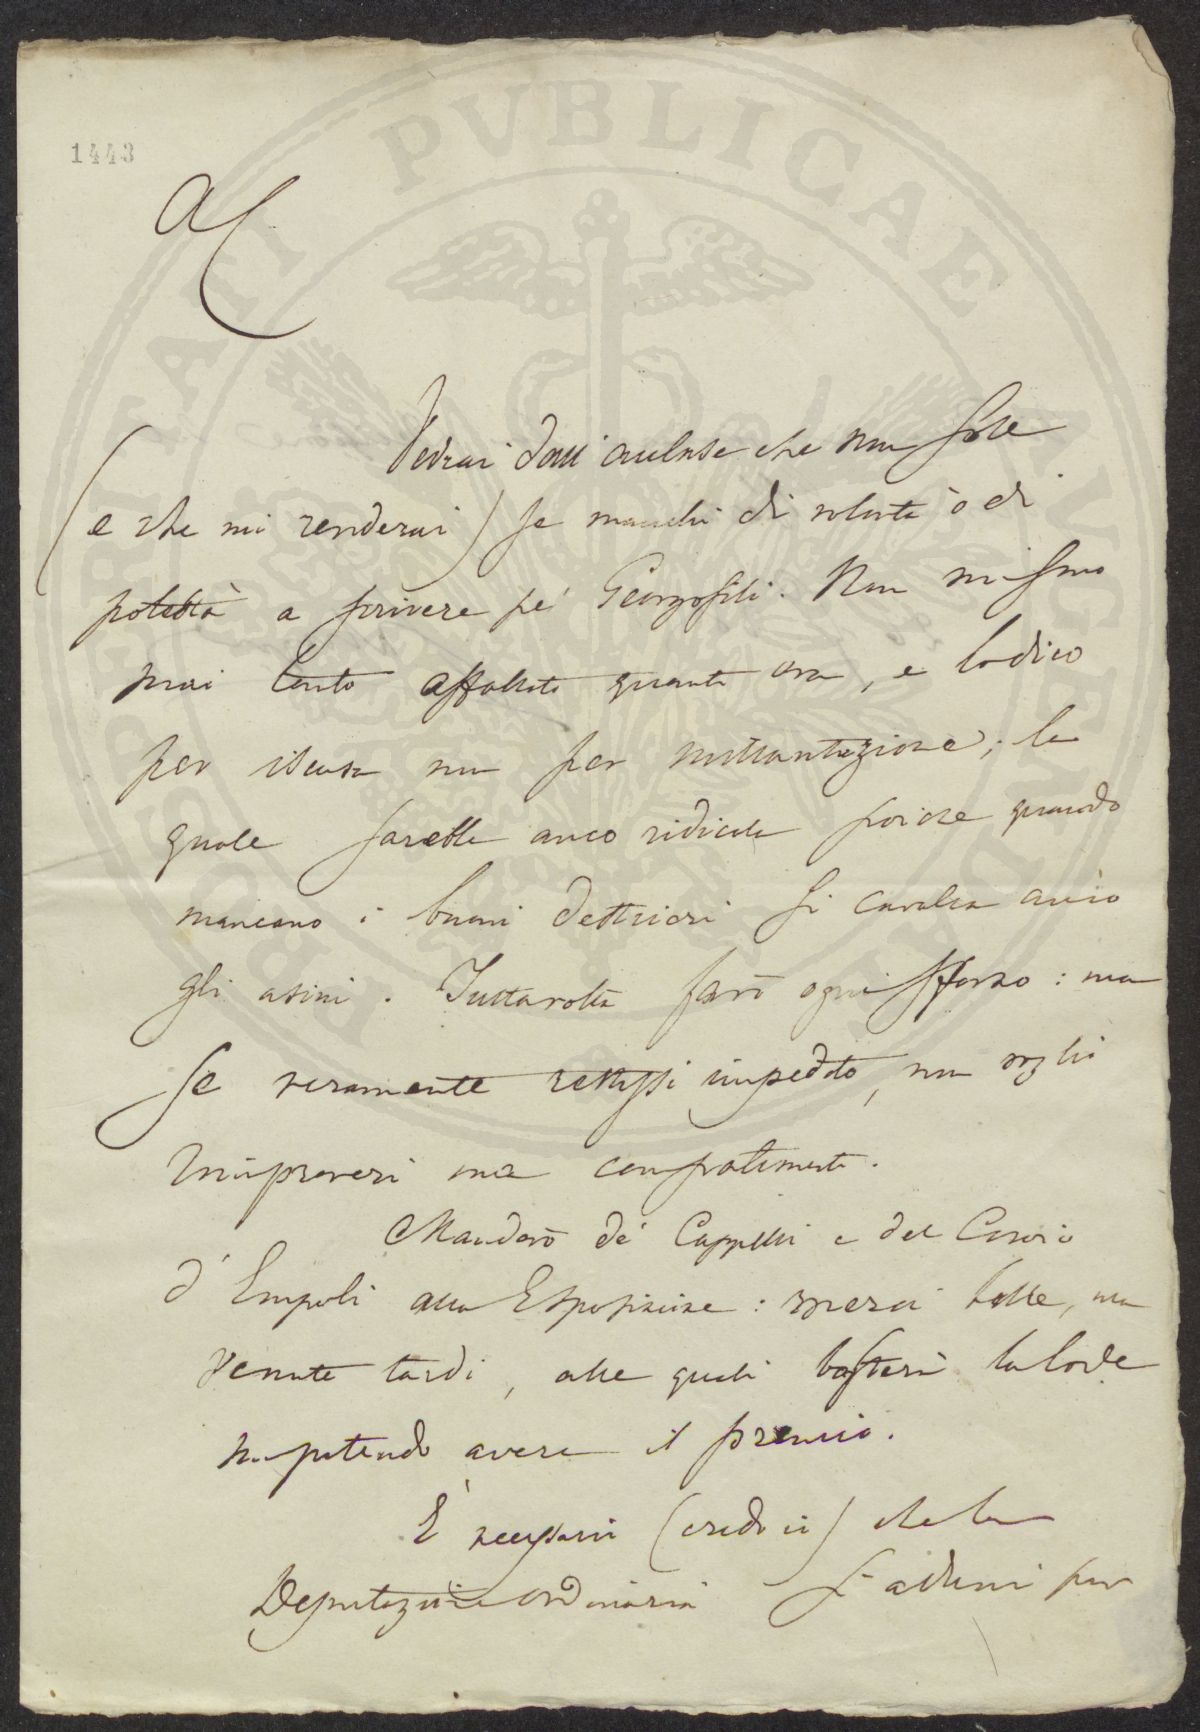 1443
AC
Vedrai dall'acclusa che non
(e che mi renderai) se manchi di volontà o di
potestà a scrivere pe' Georgofili. Non mi fu
mai tanto affollato quanto ora, e lo dico
per iscusa non per millantazione; la
quale sarebbe anco ridicola poiché quando
mancano i buoni destrieri si cavalca anco
gli asini. Tuttavolta farò ogni sforzo: ma
se veramente restassi impedito, non voglio
rimproveri ma compatimento.
Manderò de' Cappelli e del
d'Empoli alla Esposizione: belle, ma
venute tardi, alle quali basterà la lode
non potendo avere il premio.
È necessario (credo io) che la
Deputazione ordinaria s'aduni per
PROSPERITATI PVBLICAE AVGENDAE